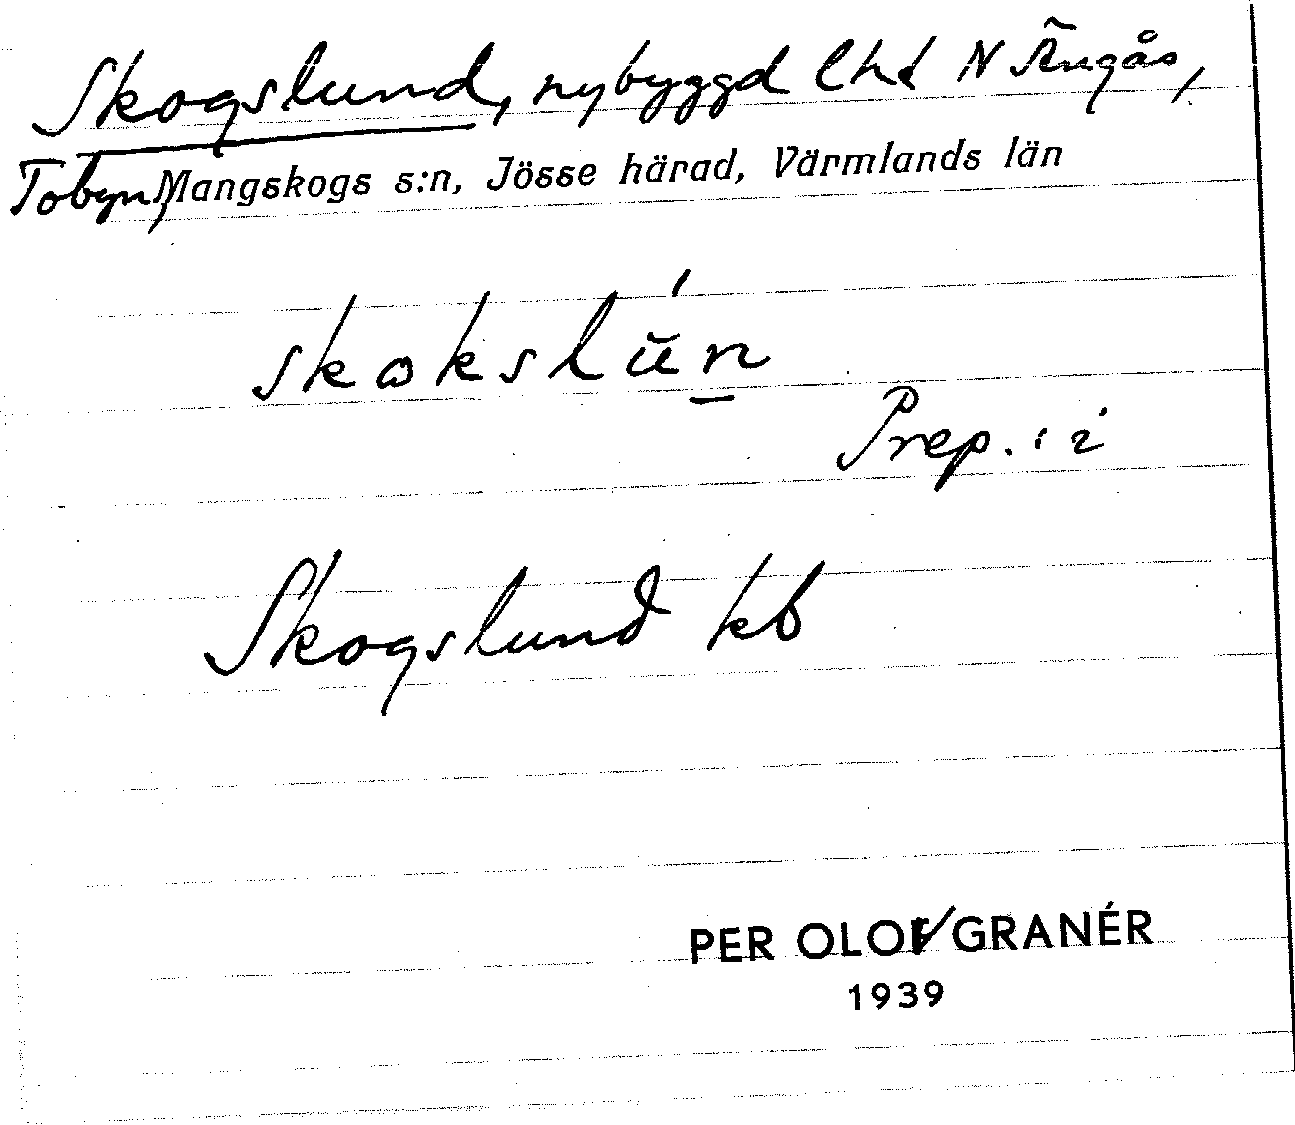 Skogslund, nybyggd lht N Ängås,
Tobyn, Mangskogs s:n, Jösse härad, Värmlands län
skokslún
Prep. : i
Skogslund kb
PER OLOV GRANÉR
1939